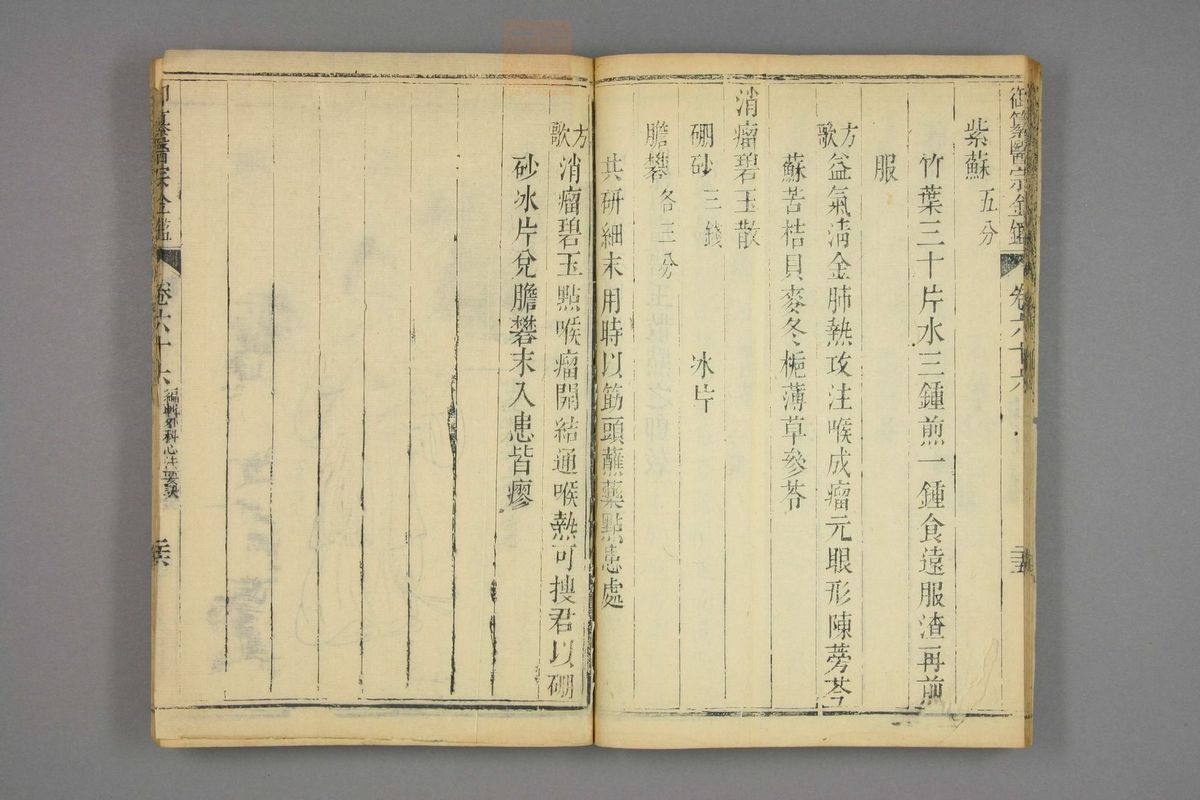 御纂醫宗金鑑 卷六十六 二十五
紫蘇五分
竹葉三十片水三鍾煎一鍾食遠服渣再煎
服
方歌 益氣清金肺熱攻注喉成瘤元眼形陳蒡苓
蘇苦桔貝麥冬梔薄草參苓
消瘤碧玉散
硼砂三錢 冰片
膽礬各三分
共研細末用時以筋頭蘸藥點患處
方歌 消瘤碧玉點喉瘤開結通喉熱可搜君以硼
砂冰片兌膽礬末入患皆瘳
御纂醫宗金鑑 卷六十六 編輯外科心法要訣 二十六